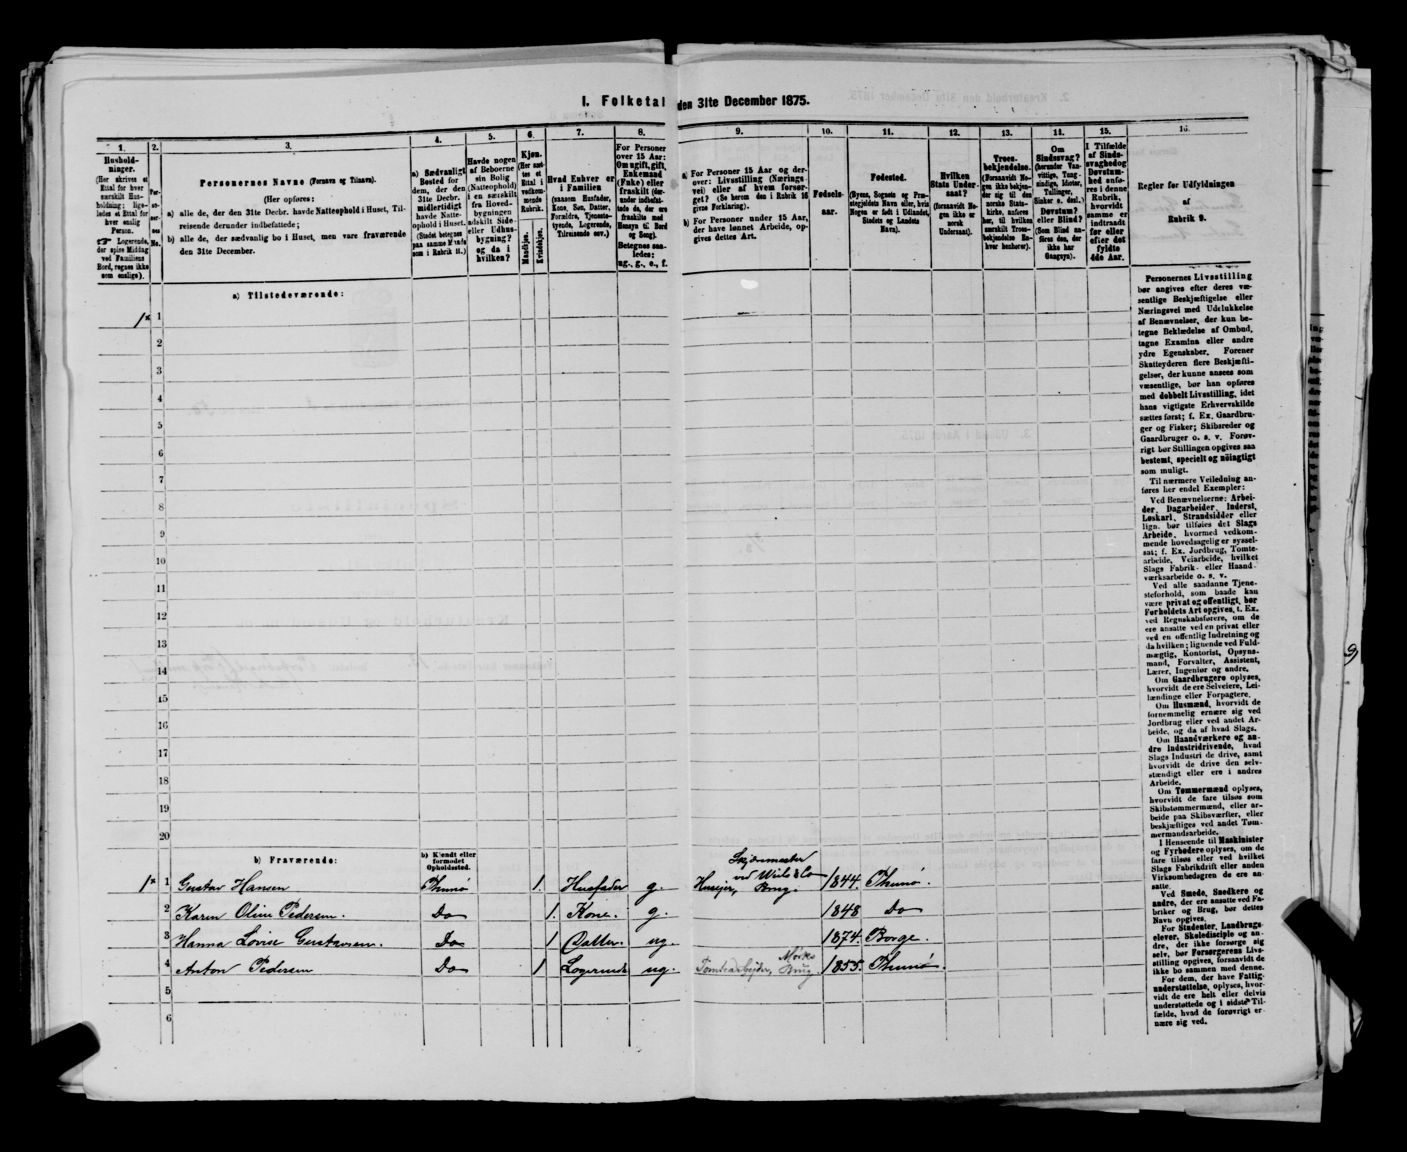 I. Folketal den 31te December 1875.
1.
Hushold-
ninger.
(Her skrives et
Ettal for hver
særskilt Hus-
holdning; lige-
ledes et Ettal for
hver enslig
Person.
Logerende,
der spise Middag
ved Familiens
Bord, regnes ikke
som enslige).
2.
Per-
No.
3.
Personernes Navne (Fornavn og Tilnavn).
(Her opføres:
a) alle de, der den 31te Decbr. havde Natteophold i Huset, Til-
reisende derunder indbefattede;
b) alle de, der sædvanlig bo i Huset, men vare fraværende
den 31te December.
4.
a) Sædvanligt
Bosted for
dem, der den
31te Decbr.
midlertidigt
havde Natte-
ophold i Huset.
(Stedet betegnes
paa samme Maade
som i Rubrik 11.)
5.
Havde nogen
af Beboerne
sin Bolig
(Natteophold)
i en særskilt
fra Hoved-
bygningen
adskilt Side-
eller Udhus-
bygning?
og da i
hvilken?
6.
Kjøn.
(Her sæt-
tes et
Ettal i
vedkom-
mende
Rubrik.
Mandkjøn.
Kvindekjøn.
7.
Hvad Enhver er
i Familien
(saasom Husfader,
Kone, Søn, Datter,
Forældre, Tjeneste-
tyende, Logerende,
Tilreisende osv.)
8.
For Personer
over 15 Aar:
Om ugift, gift,
Enkemand
(Enke) eller
fraskilt (der-
under indbefat-
tede de, der ere
fraskilte med
Hensyn til Bord
og Seng).
Betegnes saa-
ledes:
ug., g., e., f.
9.
a) For Personer 15 Aar og der-
over: Livsstilling (Nærings-
vei) eller af hvem forsør-
get? (Se herom den i Rubrik 16
givne Forklaring).
b) For Personer under 15 Aar,
der have lønnet Arbeide, op-
gives dettes Art.
10.
Fødsels-
aar.
11.
Fødested.
(Byens, Sognets og Præ-
stegjeldets Navn eller, hvis
Nogen er født i Udlandet,
Stedets og Landets
Navn).
12.
Hvilken
Stats Under-
saat?
(forsaavidt No-
gen ikke er
norsk
Undersaat).
13.
Troes-
bekjendelse.
(Forsaavidt No-
gen ikke bekjen-
der sig til den
norske Stats-
kirke, anføres
her, til hvilken
særskilt Troes-
bekjendelse En-
hver henhører).
14.
Om
Sindssvag?
(herunder Van-
vittige, Tung-
sindige, Idioter,
Tillinger,
Sinker o. desl.)
Døvstum?
eller Blind?
(Som Blind an-
føres den, der
ikke har
Gangsyn).
15.
I Tilfælde
af Sinds-
svaghed og
Døvstum-
hed anfø-
res i denne
Rubrik,
hvorvidt
samme er
indtraadt
før eller
efter det
fyldte
4de Aar.
16.
Regler for Udfyldningen
af
Rubrik 9.
a) Tilstedeværende:
1 1
2
3
4
5
6
7
8
9
10
11
12
13
14
15
16
17
18
19
20
b) Fraværende:
b) Kjendt eller
formodet
Opholdssted.
1 1 Gustav Hansen Thunø 1. Husfader g. Huseier, Skjæremester ved Wiils & Co Brug. 1844. Thunø.
2 Karen Oline Pedersen. Do 1. Kone. g. 1848 Do
3 Hanna Lovise Gustavsen. Do 1 Datter. ug. 1874. Borge.
4 Anton Pedersen Do 1 Logerende ug. Tomtearbejder, Brug 1855. Thunø.
5
6
Personernes Livsstilling
bør angives efter deres væ-
sentlige Beskjæftigelse eller
Næringsvei med Udelukkelse
af Benævnelser, der kun be-
tegne Beklædelse af Ombud,
tagne Examina eller andre
ydre Egenskaber. Forener
Skatteyderen flere Beskjæfti-
gelser, der kunne ansees som
væsentlige, bør han opføres
med dobbelt Livsstilling, idet
hans vigtigste Erhvervskilde
sættes først; f. Ex. Gaardbru-
ger og Fisker; Skibsreder og
Gaardbruger o. s. v. Forøv-
rigt bør Stillingen opgives saa
bestemt, specielt og nøiagtigt
som muligt.
Til nærmere Veiledning an-
føres her endel Exempler:
Ved Benævnelserne: Arbei-
der, Dagarbeider, Inderst,
Løskarl, Strandsidder eller
lign. bør tilføies det Slags
Arbeide, hvormed vedkom-
mende hovedsagelig er syssel-
sat; f. Ex. Jordbrug, Tomte-
arbeide, Veiarbeide, hvilket
Slags Fabrik- eller Haand-
værksarbeide o. s. v.
Ved alle saadanne Tjene-
steforhold, som baade kan
være privat og offentligt, bør
Forholdets Art opgives, t. Ex.
ved Regnskabsførere, om de
ere ansatte ved en privat eller
ved en offentlig Indretning og
da hvilken; lignende ved Fuld-
mægtig, Kontorist, Opsyns-
mand, Forvalter, Assistent,
Lærer, Ingeniør og andre.
Om Gaardbrugere oplyses,
hvorvidt de ere Selveiere, Lei-
lændinge eller Forpagtere.
Om Husmænd, hvorvidt de
fornemmelig ernære sig ved
Jordbrug eller ved andet Ar-
beide, og da af hvad Slags.
Om Haandværkere og an-
dre Industridrivende, hvad
Slags Industri de drive, samt
hvorvidt de drive den selv-
stændigt eller ere i andres
Arbeide.
Om Tømmermænd oplyses,
hvorvidt de fare tilsøs som
Skibstømmermænd, eller ar-
beide paa Skibsværfter, eller
beskjæftiges ved andet Tøm-
mermandsarbeide.
I Henseende til Maskinister
og Fyrbødere oplyses, om de
fare tilsøs eller ved hvilket
Slags Fabrikdrift eller anden
Virksomhedsgren de ere an-
satte.
Ved Smede, Snedkere og
andre, der ere ansatte ved Fa-
briker og Brug, bør dettes
Navn opgives.
For Studenter, Landbrugs-
elever, Skoledisciple og an-
dre, der ikke forsørge sig
selv, bør Forsørgerens Livs-
stilling opgives, forsaavidt de
ikke bo sammen med denne.
For dem, der have Fattig-
understøttelse, oplyses, hvor-
vidt de ere helt eller delvis
understøttede og i sidste Til-
fælde, hvad de forøvrigt er-
nære sig ved.